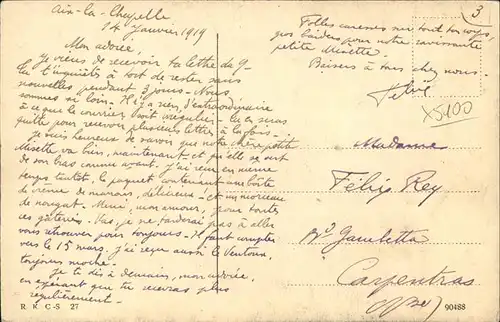 Aix-la-Chapelle
14 Janvier 1919
Mon adorée,
je viens de recevoir ta lettre du 9.
tu t'inquiètes à tort de rester sans
nouvelles pendant 3 jours. Nous
sommes si loin. Il n'y a rien d'extraordinaire
à ce que le courrier soit irrégulier. tu en seras
quitte pour recevoir plusieurs lettres à la fois.
je suis heureux de savoir que notre chère petite
Misette va bien, maintenant, et qu'elle se sert
de son bras comme avant. J'ai reçu en même
temps tantôt, le paquet contenant une boîte
de crème de marrons, délicieuse. Et un morceau
de nougat. Merci, mon amour, pour toutes
ces gâteries. Mais je ne tarderai pas à aller
vous retrouver pour toujours. Il faut compter
vers le 15 mars. j'ai reçu aussi le Ventoux,
toujours moche.
je te dis à demain, mon adorée,
en espérant que tu recevras plus
régulièrement.
R. K. C.-S. 27
Folles caresses sur tout ton corps,
gros baisers pour notre ravissante
petite Misette.
Baisers à tous chez nous.
Félix
3
X5100
Madame
Félix Rey
Bd Gambetta
Carpentras
90488